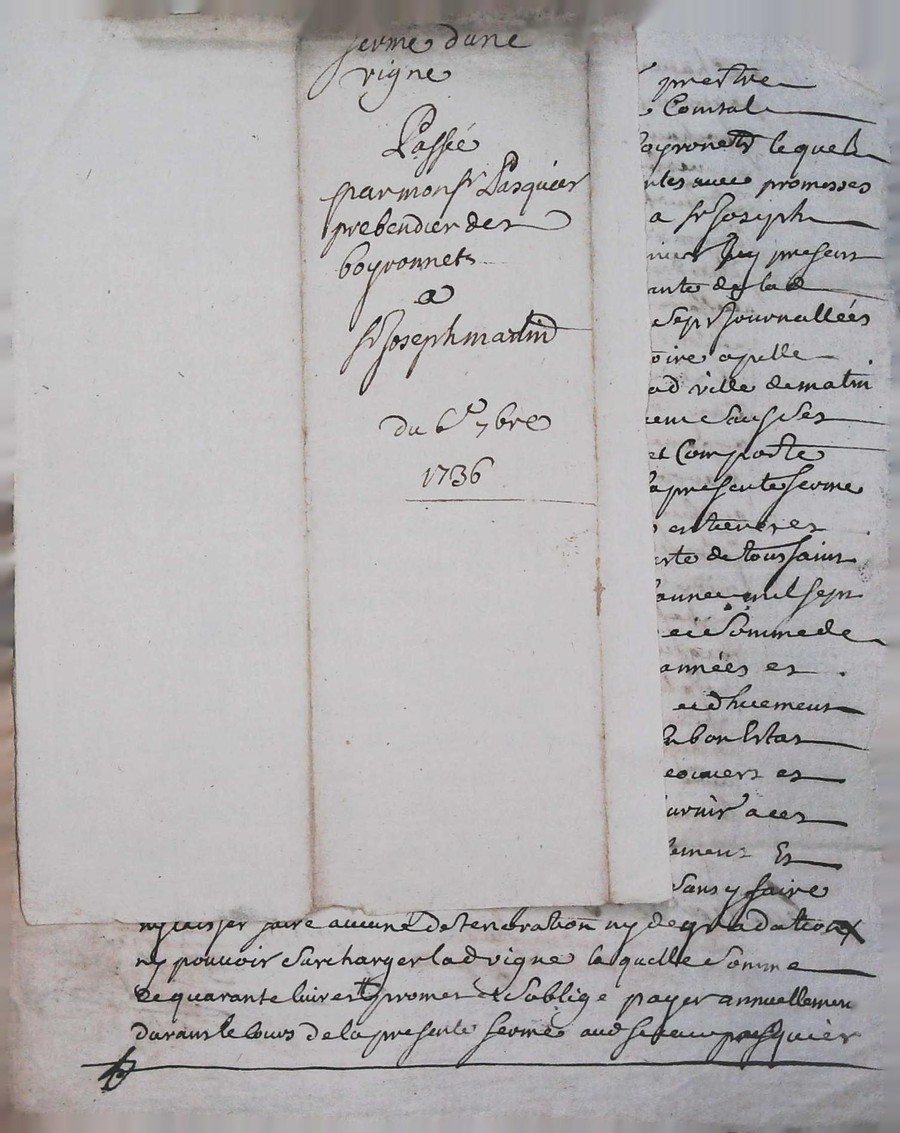 ferme dune
vigne
Passée
par monsr Pasquier
prebendier des
boyronnets
a
sr Joseph martin
du 6e 7bre
1736
prestre
Comtal
boyronets lequel
avec promesses
a sr Joseph
icy present
de lad
sept Journallées
apelle
lad ville de martin
sauf ses
et Comporte
la presente ferme
entieres et
de toussaint
année mil sept
somme de
années et
en bon Estat
et
fournir a ces
Et
sans y faire
ny laisser faire aucune deterioration ny degradation
ny pouvoir surcharger lad vigne laquelle somme
de quarante livres promet et soblige payer annuellement
durant le cours de la presente ferme aud sieur pasquier